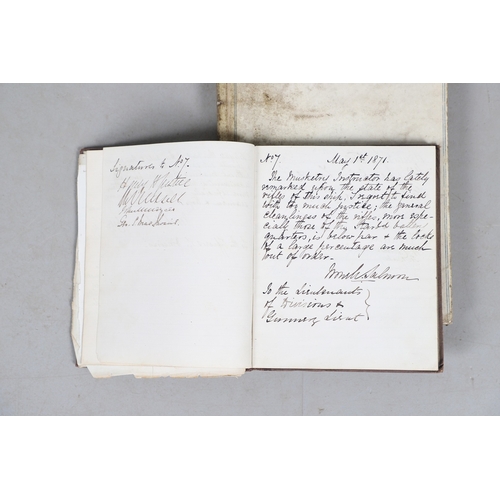 Signatures to No 7.
No 7 May 1st 1871.
The Musketry Instructor has lately
remarked upon the state of the
rifles of this ship, I regret to find
with too much justice; the general
cleanliness of the rifles, more espe-
cially those of the Starbd
quarters, is below par & the locks
of a large percentage are much
out of order.
Nowell Salmon
To the Lieutenants
of Divisions &
Gunnery Lieut